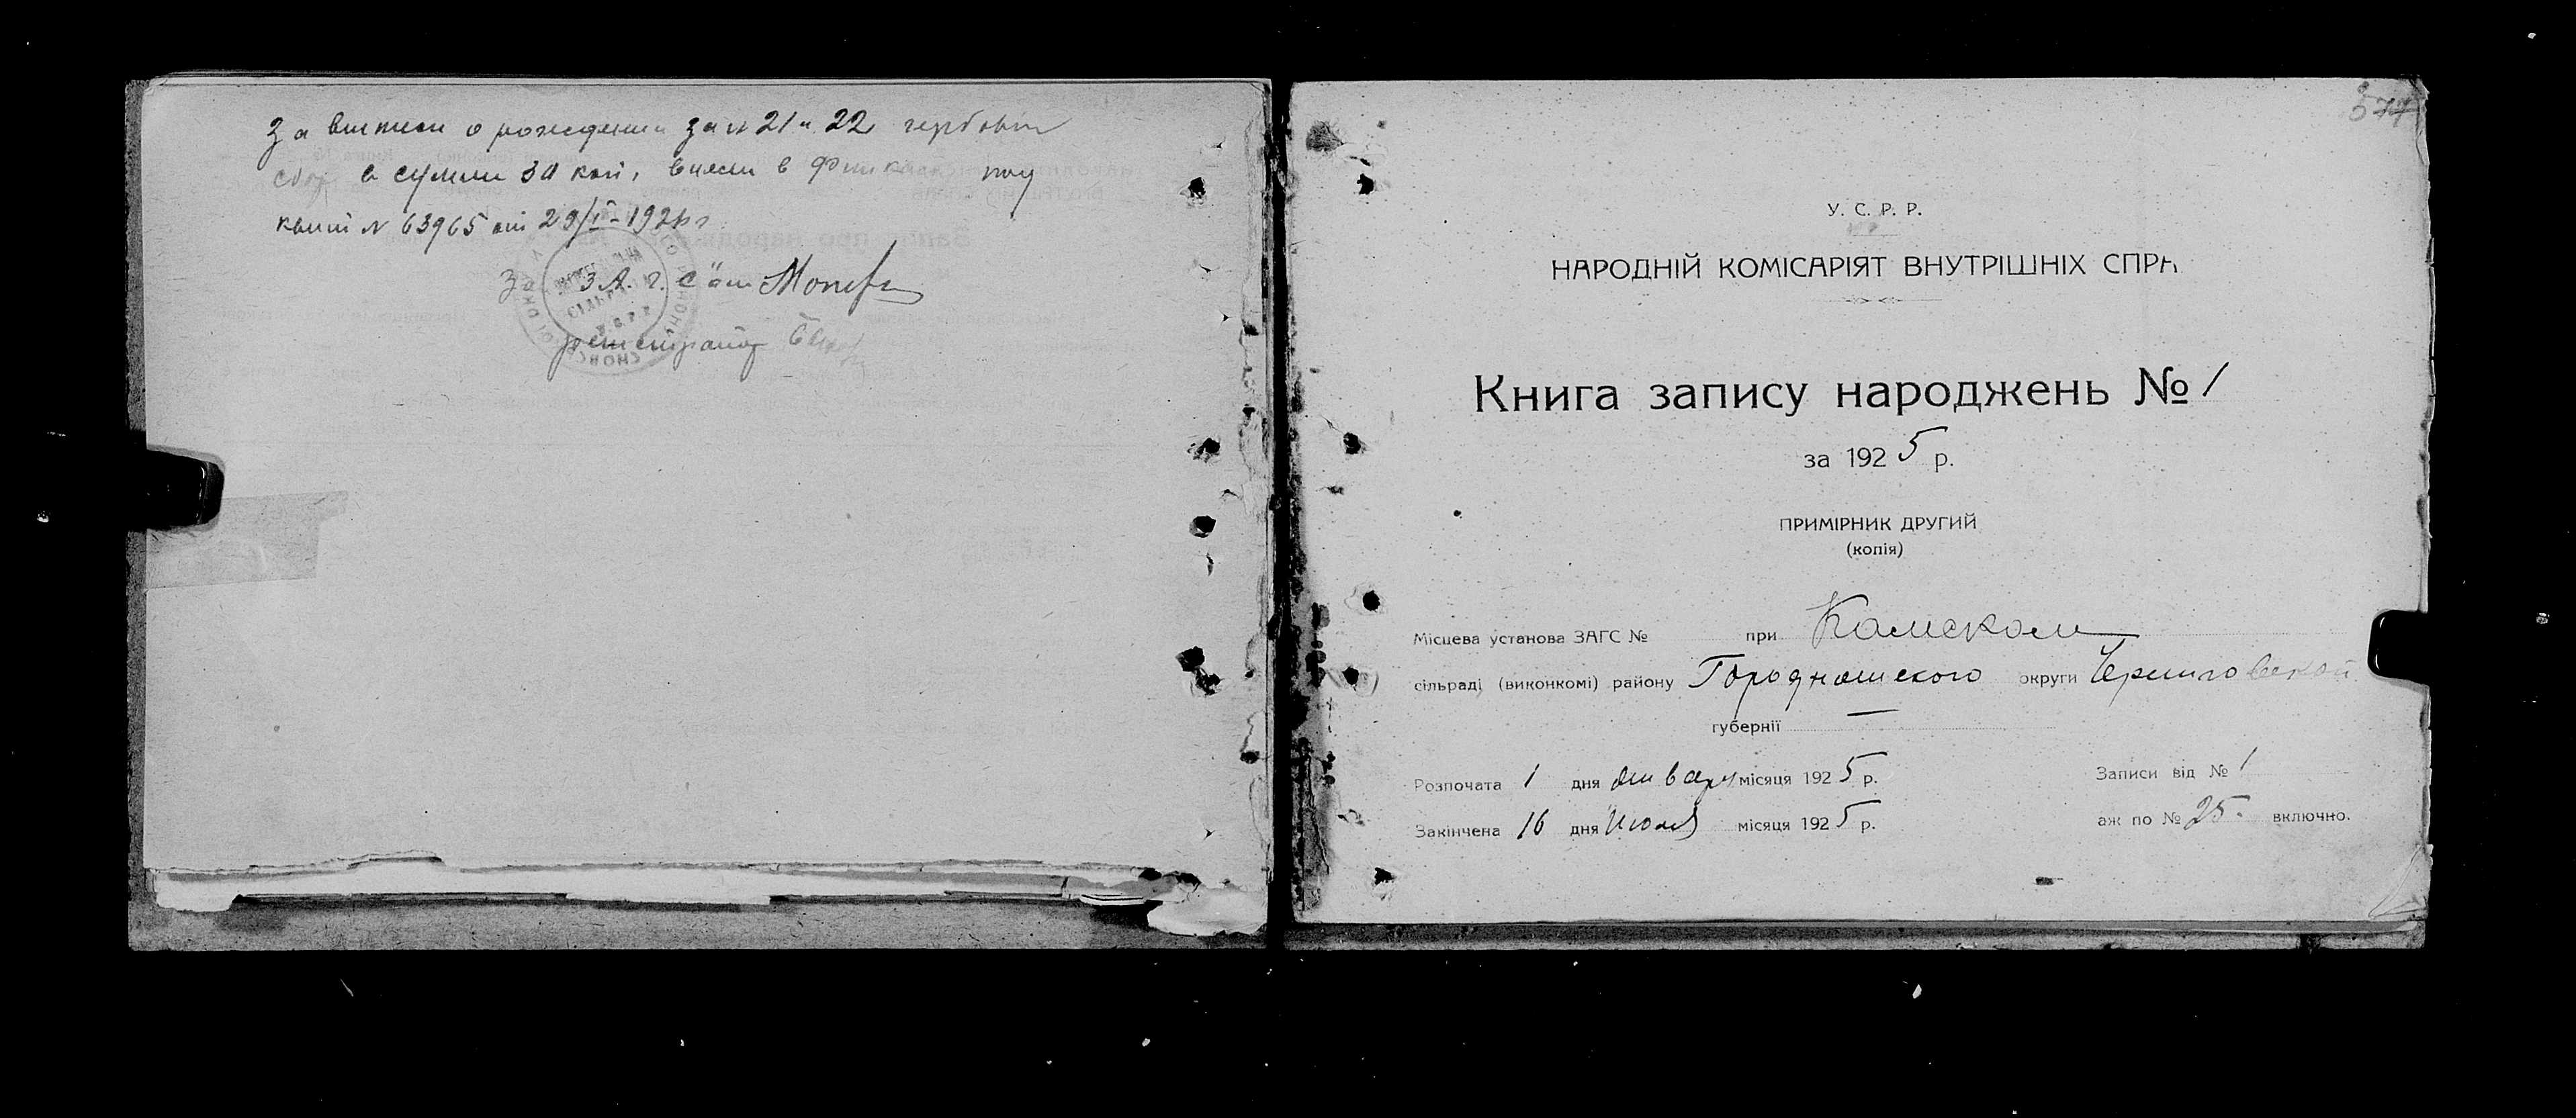 За виписи о рождении за № 21 и 22 гербовый
сбор в сумме 30 коп. внесен в
квит № 63965 от 29/I-192 г
Регистратор
У. С. Р. Р.
НАРОДНІЙ КОМІСАРІЯТ ВНУТРІШНІХ СПРА
Книга запису народжень № 1
за 1925 р.
ПРИМІРНИК ДРУГИЙ
(копія)
Місцева установа ЗАГС № при Камском
сільраді (виконкомі) району Городнянского округи Черниговской
губернії —
Розпочата 1 дня января місяця 1925 р. Записи від № 1
Закінчена 16 дня Июля місяця 1925 р. аж по № 25. включно.